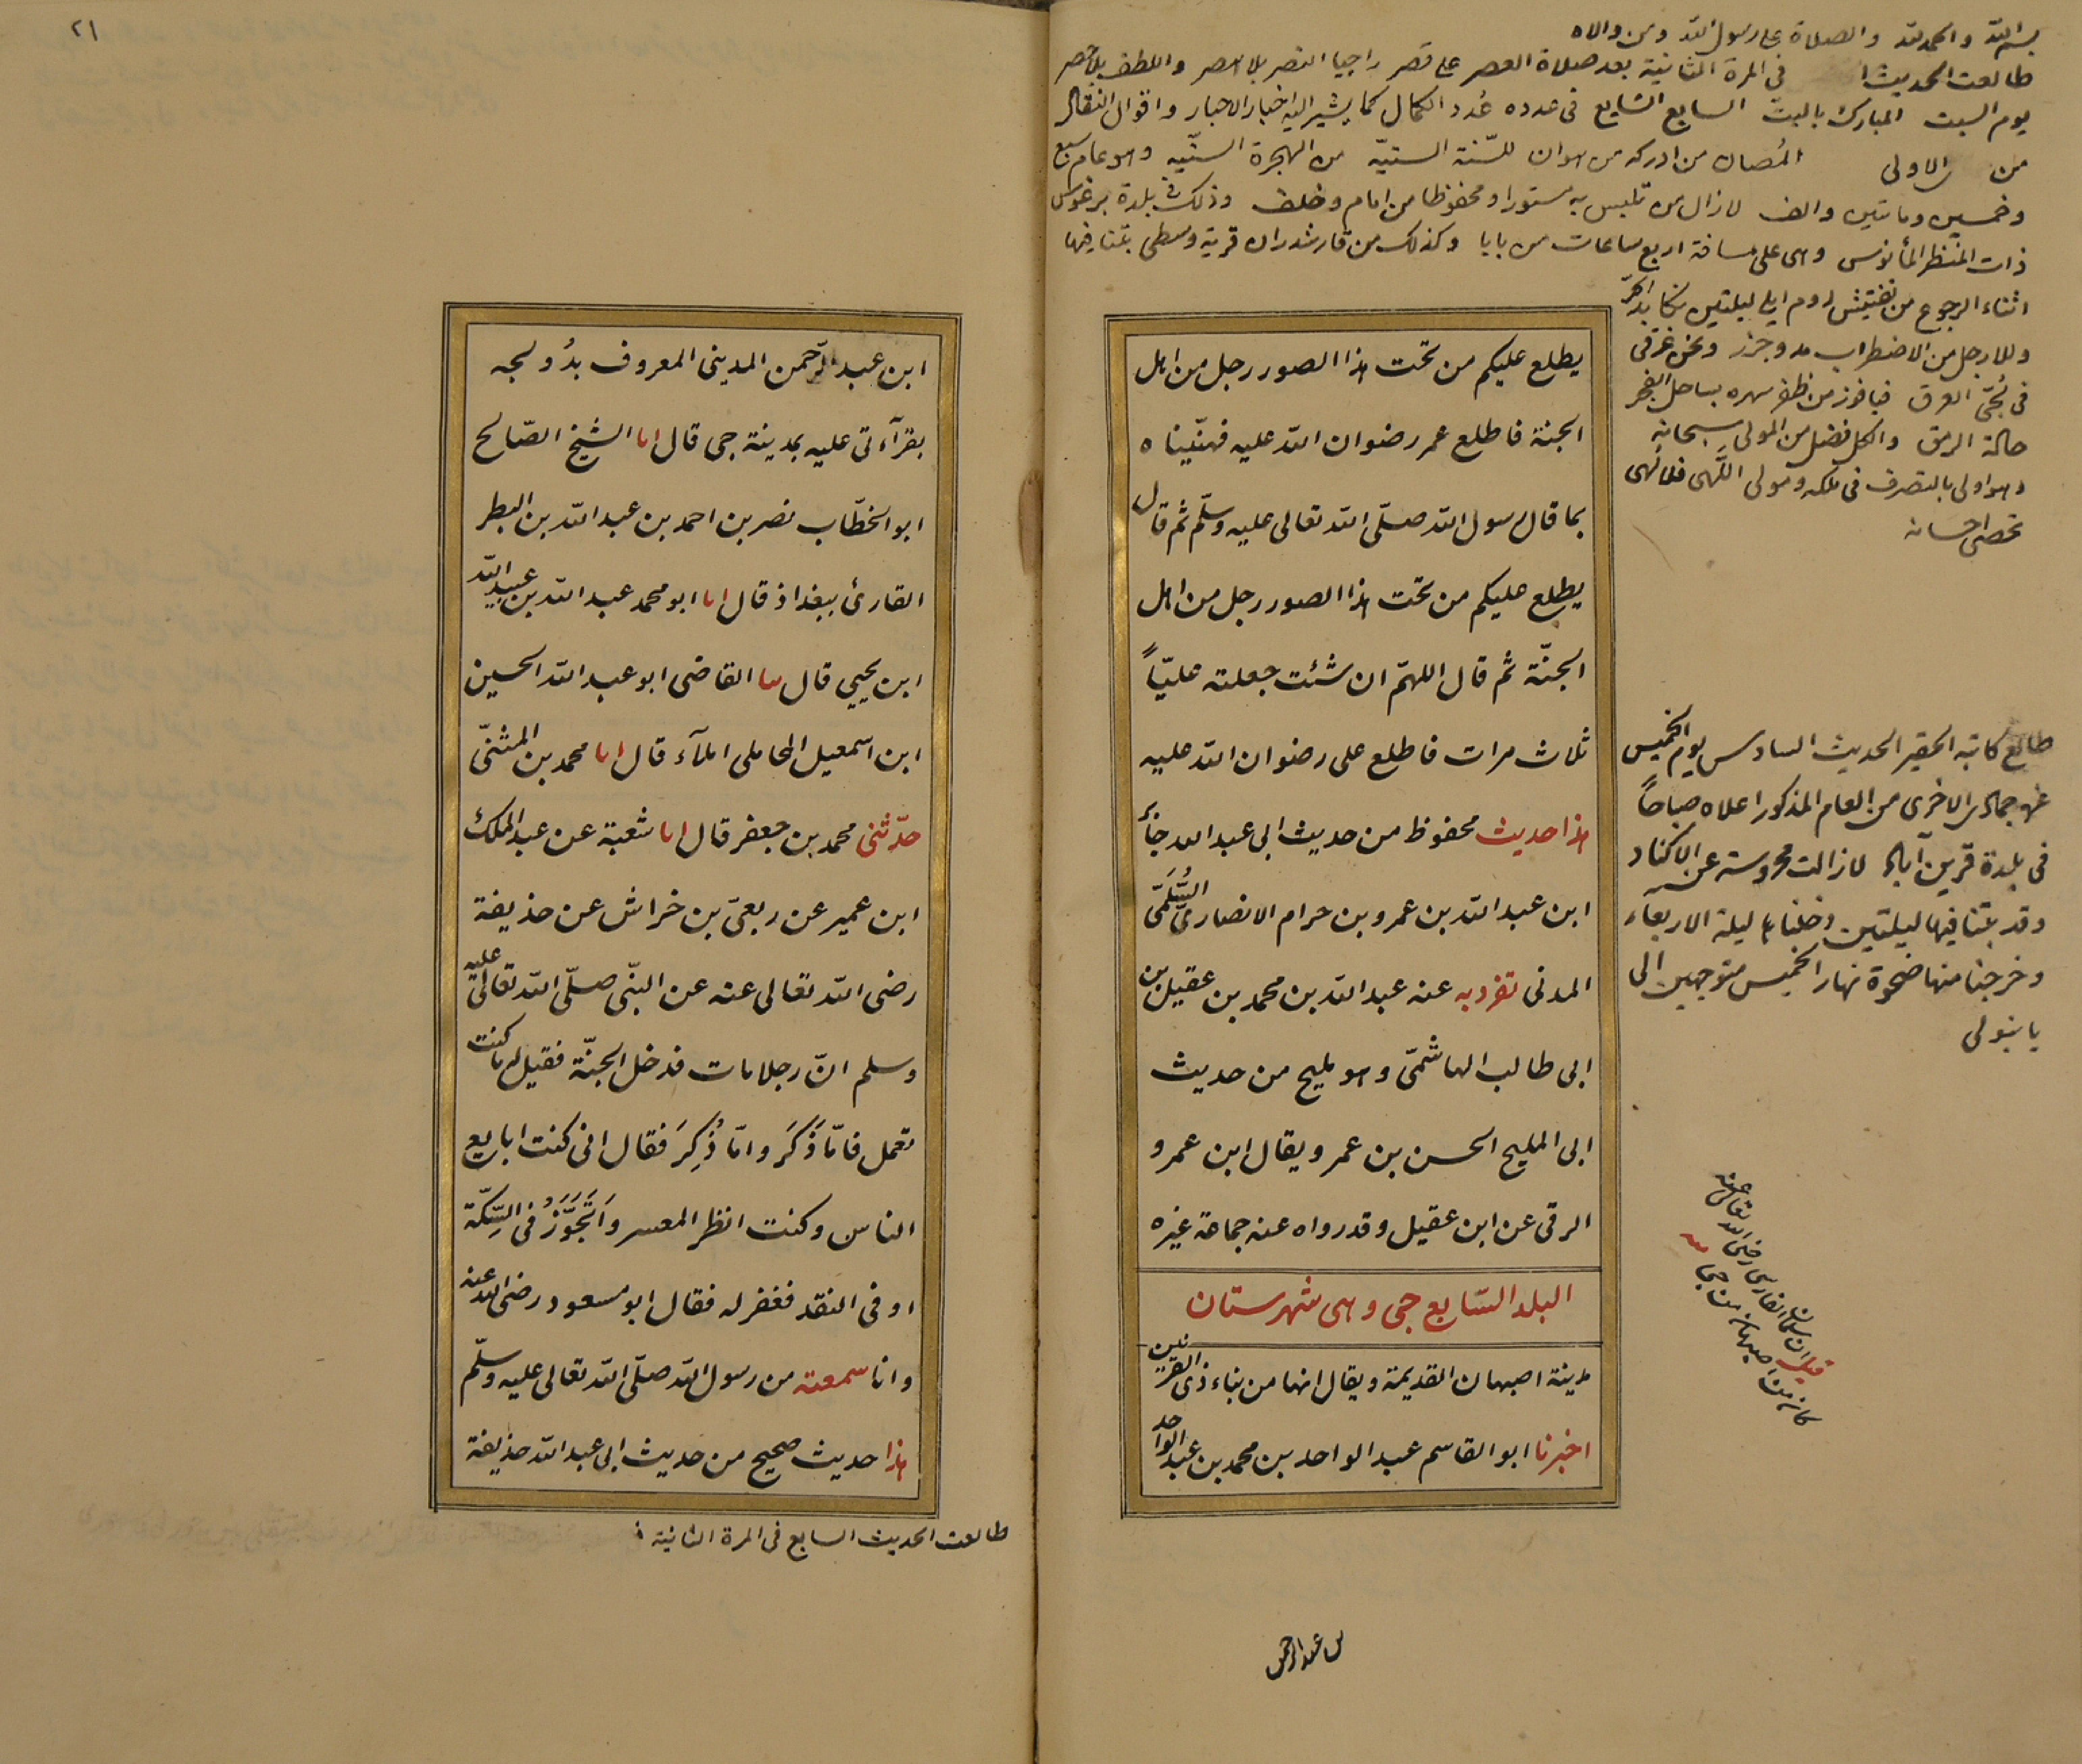 بسم الله والحمد لله والصلاة على رسول الله ومن والاه
طالعت الحديث في المرة الثانية بعد صلاة العصر على قصر راجيا النصر بلا هصر واللطف بلا حصر
يوم السبت المبارك بالبت السابع الشايع في عدده عُدد الكمال كما يشير اليه اخبار الاحبار واقوال النقال
من الاولى المُصان من ادركه من هوان للسّنة السنيّة من الهجرة السنّيه وهو عام سبع
وخمسين ومايتين والف لا زال من تلبس به مستورا ومحفوظا من امام وخلف وذلك في بلدة برغوس
ذات المنظر المأنوس وهي على مسافة اربع ساعات من بابا وكذلك من قارشدران قرية وسطى بتنا فيها
اثناء الرجوع من تفتيش روم ايلي ليلتين نكابد الحرّ
وللارجل من الاضطراب مد وجزر ونحن غرقى
في لُجّتي العرق فيا فوز من ظفر سهره بساحل الفجر
حالة الرمق والكل فضل من المولى سبحانه
وهو اولى بالتصرف في ملكه ومولى اللهى فلا نُهى
تحصى احسانه
يطلع عليكم من تحت هذا الصور رجل من اهل
الجنة فاطلع عمر رضوان الله عليه فهنّيناه
بما قال رسول الله صلّى الله تعالى عليه وسلّم ثم قال
يطلع عليكم من تحت هذا الصور رجل من اهل
الجنّة ثم قال اللهمّ ان شئت جعلته عليّاً
ثلاث مرات فاطلع على رضوان الله عليه
هذا حديث محفوظ من حديث ابى عبد الله جابر
ابن عبد الله بن عمرو بن حرام الانصارىّ السُّلَمّى
المدنى تفرد به عنه عبد الله بن محمد بن عقيل بن
ابى طالب الهاشمّى وهو مليح من حديث
ابى المليح الحسن بن عمر ويقال ابن عمرو
الرقى عن ابن عقيل وقد رواه عنه جماعة غيره
البلد السّابع جى وهى شهرستان
مدينة اصبهان القديمة ويقال انها من بناء ذى القرنين
اخبرنا ابو القاسم عبد الواحد بن محمد بن عبد الواحد
طالع كاتبه الحقير الحديث السادس يوم الخميس
جمادى الاخرى من العام المذكور اعلاه صباحاً
في بلدة قرين آباد لا زالت محروسة عن الاكناد
وقد بتنا فيها ليلتين دخلناها ليلة الاربعاء
وخرجنا منها ضحوة نهار الخميس متوجهين الى
يانبولى
قيل ان سلمان الفارسي رضي الله تعالى عنه
كان من اصبهان من جى
بن عبد الرحمن
٢١
ابن عبد الرّحمن المدينى المعروف بدُولجه
بقرآءتى عليه بمدينة جى قال انا الشيخ الصّالح
ابو الخطّاب نصر بن احمد بن عبد الله بن البطر
القارئ ببغداذ قال انا ابو محمد عبد الله بن عبيد الله
ابن يحيي قال ثنا القاضى ابو عبد الله الحسين
ابن اسمعيل المحاملى املآء قال انا محمد بن المثنّى
حدّثنى محمد بن جعفر قال انا شعبة عن عبد الملك
ابن عمير عن ربعىّ بن خراش عن حذيفة
رضى الله تعالى عنه عن النبّى صلّى الله تعالى عليه
وسلم انّ رجلا مات فدخل الجنّة فقيل له ما كنت
تعمل فامّا ذَكَرَ وامّا ذُكِرَ فقال انى كنت ابايع
الناس وكنت انظر المعسر واَتَجَوَّزُ فى السِّكّة
او فى النقد فغفر له فقال ابو مسعود رضى الله عنه
وانا سمعته من رسول الله صلّى الله تعالى عليه وسلّم
هذا حديث صحيح من حديث ابى عبد الله حذيفة
طالعت الحديث السابع في المرة الثانية